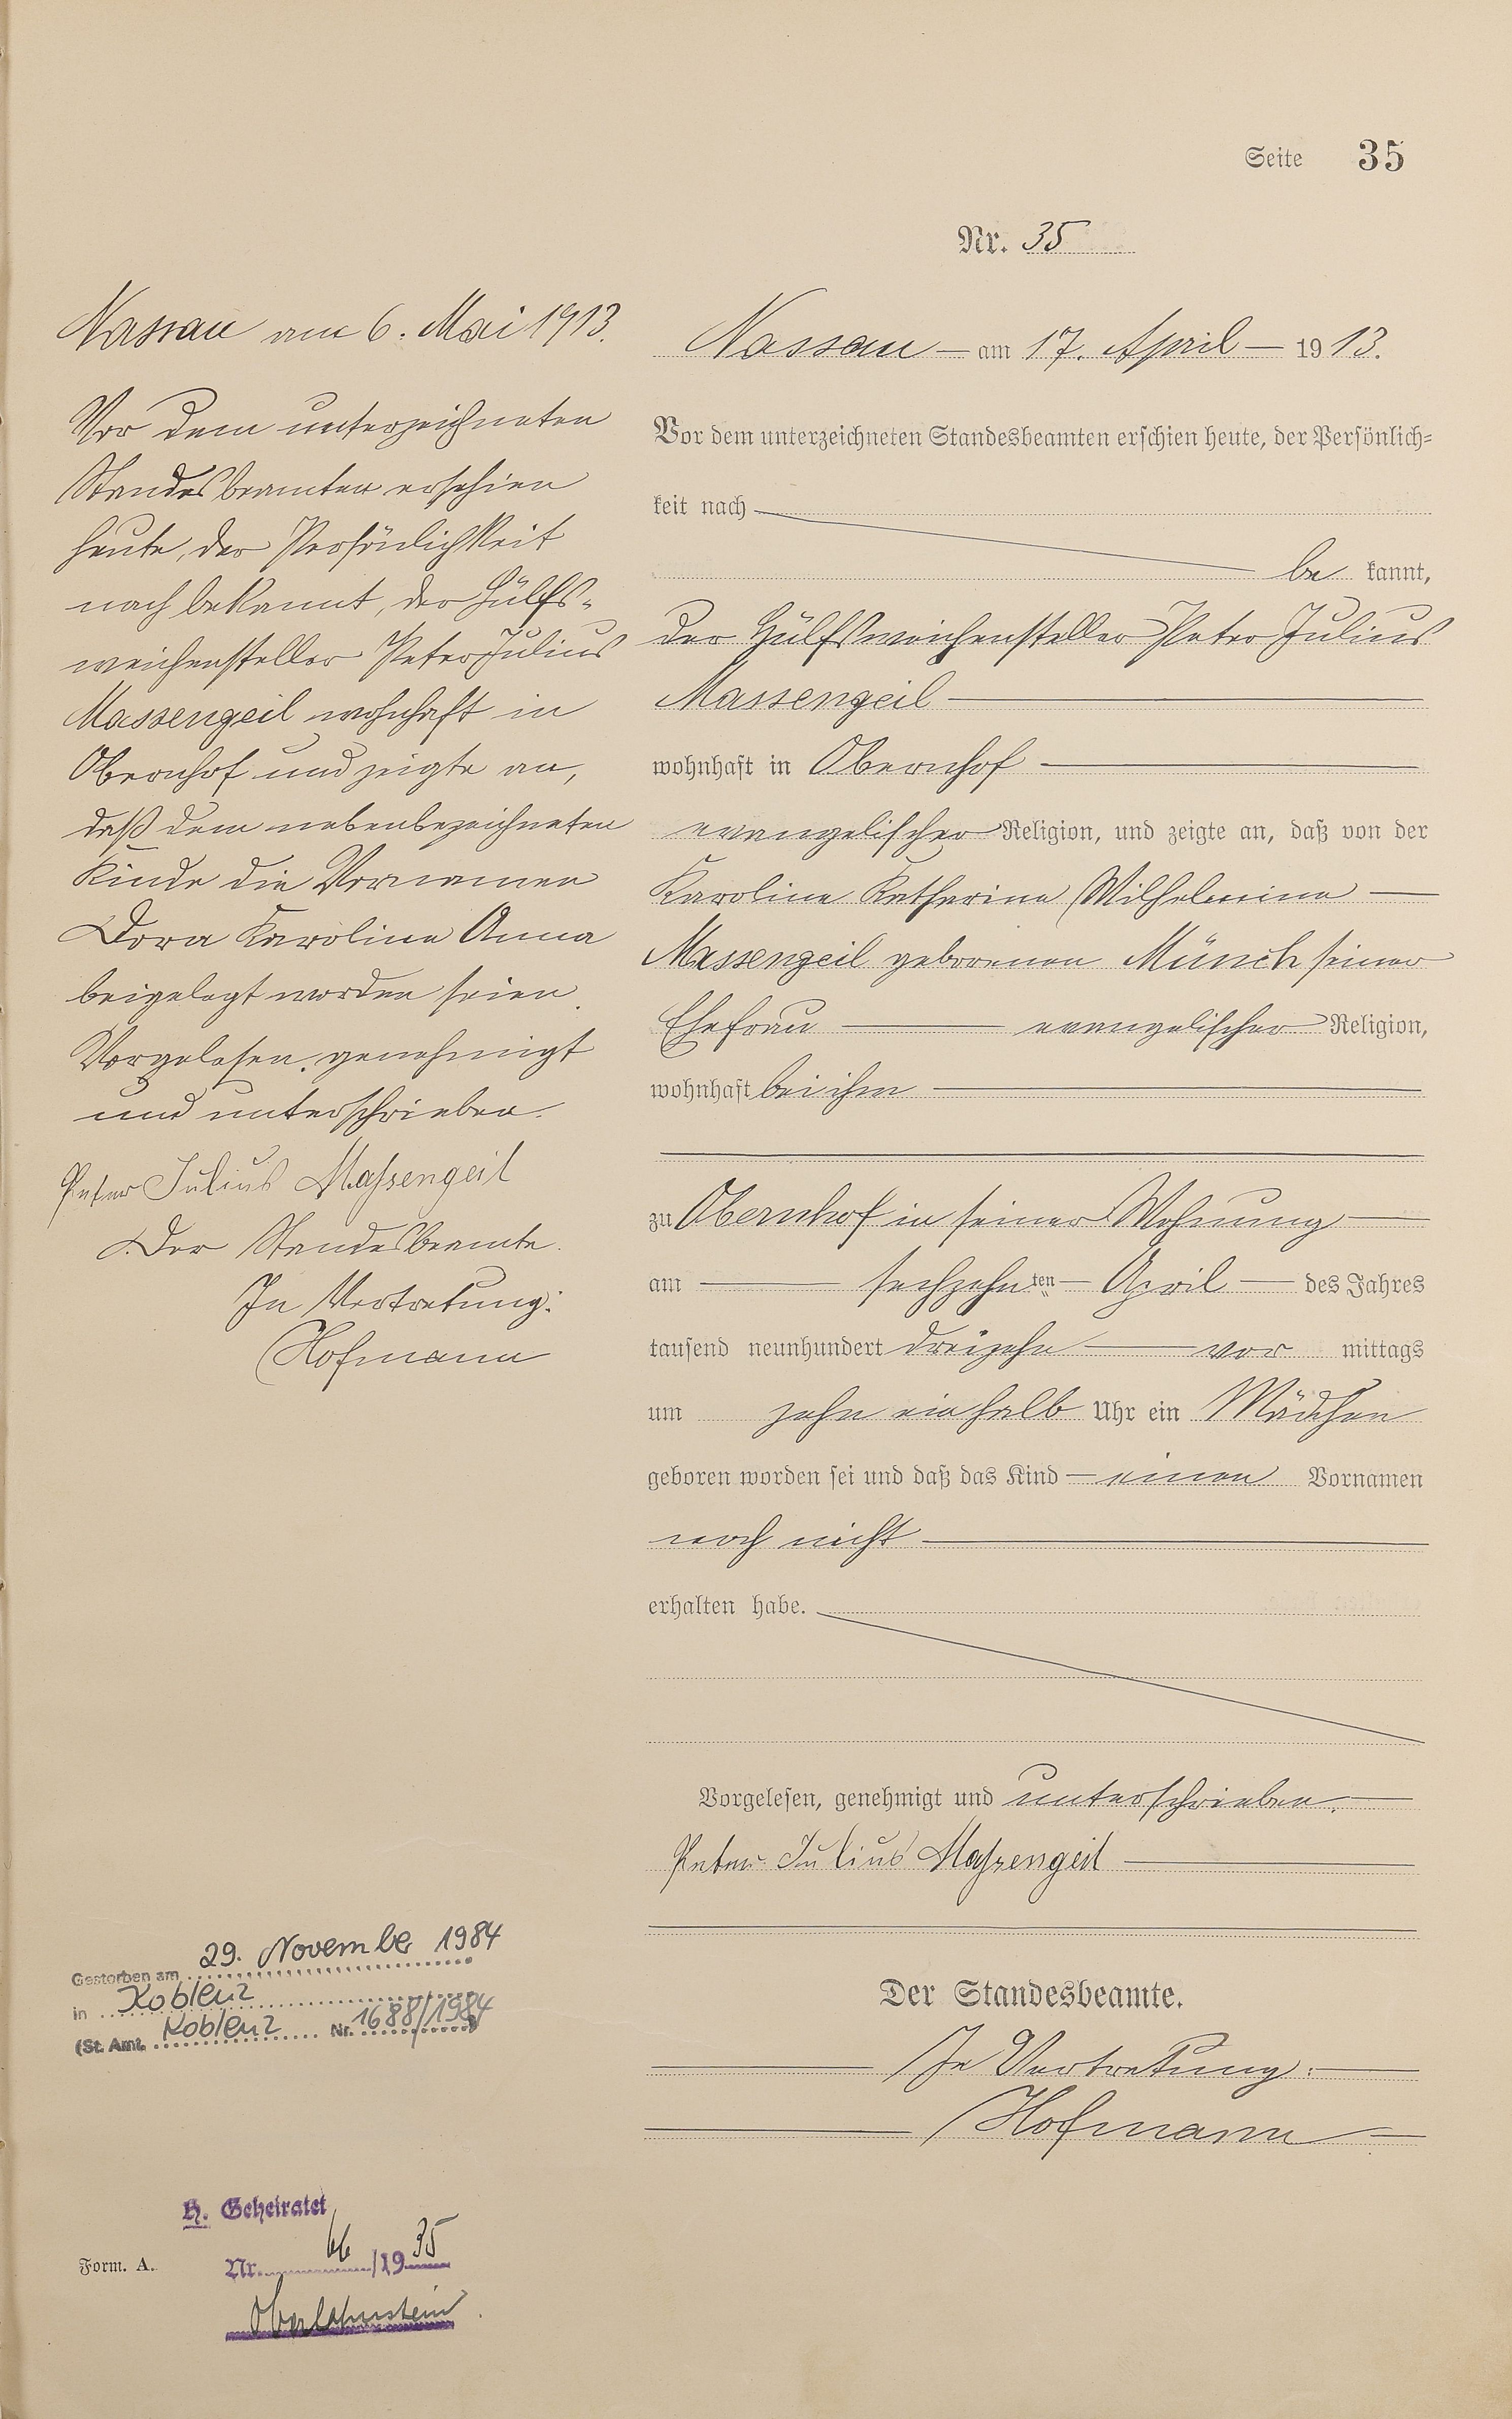 Seite 35
Nr. 35
Nassau am 6. Mai 1913.
Vor dem unterzeichneten
Standesbeamten erschien
heute, der Persönlichkeit
nach bekannt, der Hülfs-
weichensteller Peter Julius
Massengeil wohnhaft in
Obernhof und zeigte an,
daß dem nebenbezeichneten
Kinde die Vornamen
Dora Karoline Anna
beigelegt worden seien.
Vorgelesen, genehmigt
und unterschrieben.
Peter Julius Maßengeil
Der Standesbeamte.
In Vertretung:
Hofmann
Nassau am 17. April 1913.
Vor dem unterzeichneten Standesbeamten erschien heute, der Persönlich-
keit nach
be kannt,
der Hülfsweichensteller Peter Julius
Massengeil
wohnhaft in Obernhof
evangelischer Religion, und zeigte an, daß von der
Karoline Katharina Wilhelmine
Massengeil geborenen Münch seiner
Ehefrau evangelischer Religion,
wohnhaft bei ihm
zu Obernhof in seiner Wohnung
am sechzehnten April des Jahres
tausend neunhundert dreizehn vor mittags
um zehn ein halb Uhr ein Mädchen
geboren worden sei und daß das Kind einen Vornamen
noch nicht
erhalten habe.
Vorgelesen, genehmigt und unterschrieben.
Peter Julius Maßengeil
Der Standesbeamte.
In Vertretung:
Hofmann
Gestorben am 29. November 1984
in Koblenz
(St. Amt. Koblenz Nr. 1688/1984)
H. Geheiratet
Form. A. Nr. 66/1935
Oberlahnstein.